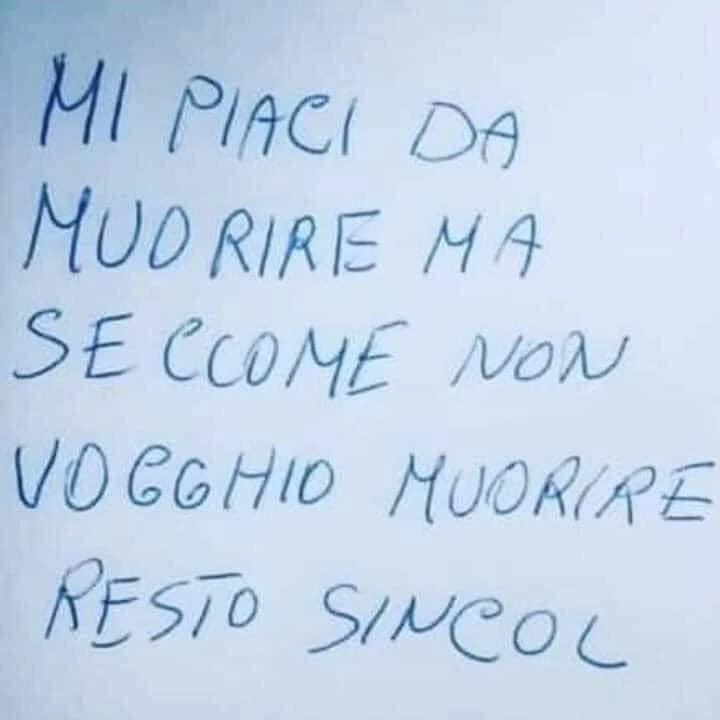 MI PIACI DA
MUORIRE MA
SECCOME NON
VOGGHIO MUORIRE
RESTO SINCOL